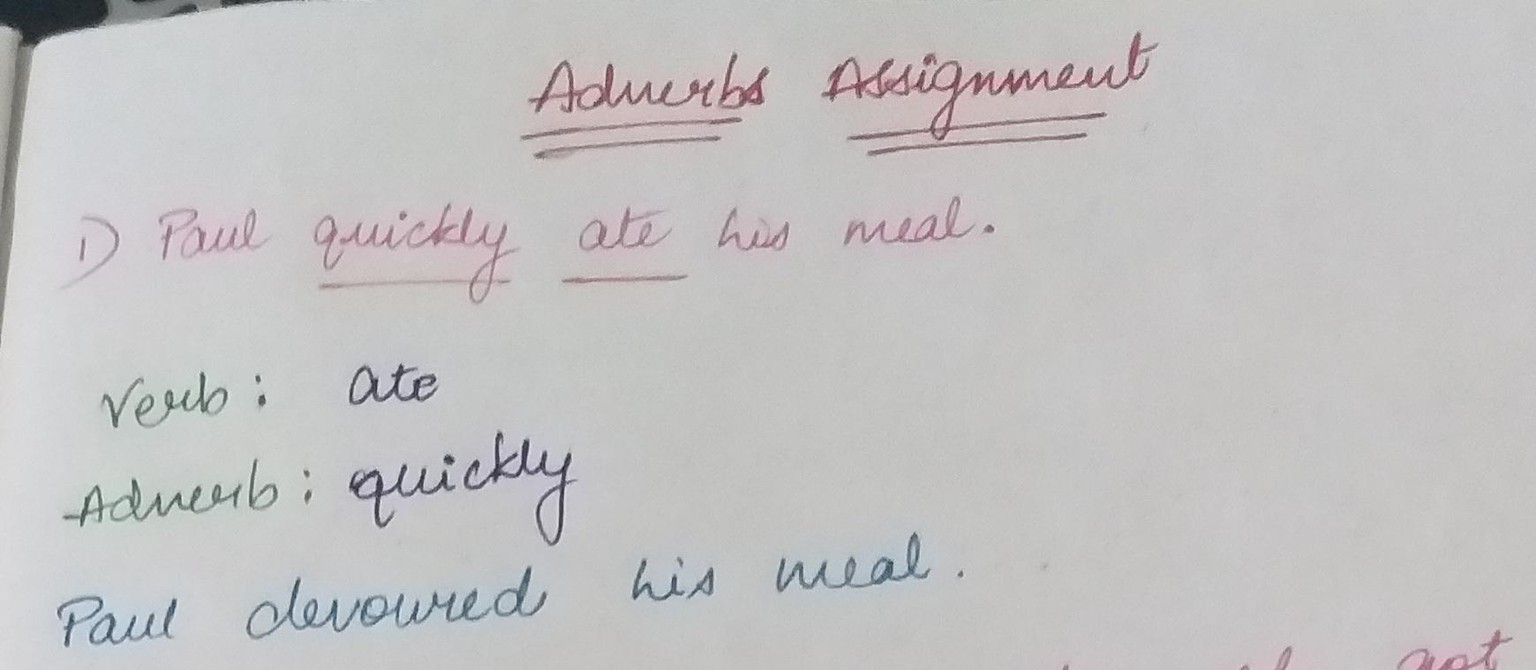 Adverbs Assignment
1) Paul quickly ate his meal.
Verb: ate
Adverb: quickly
Paul devoured his meal.
got